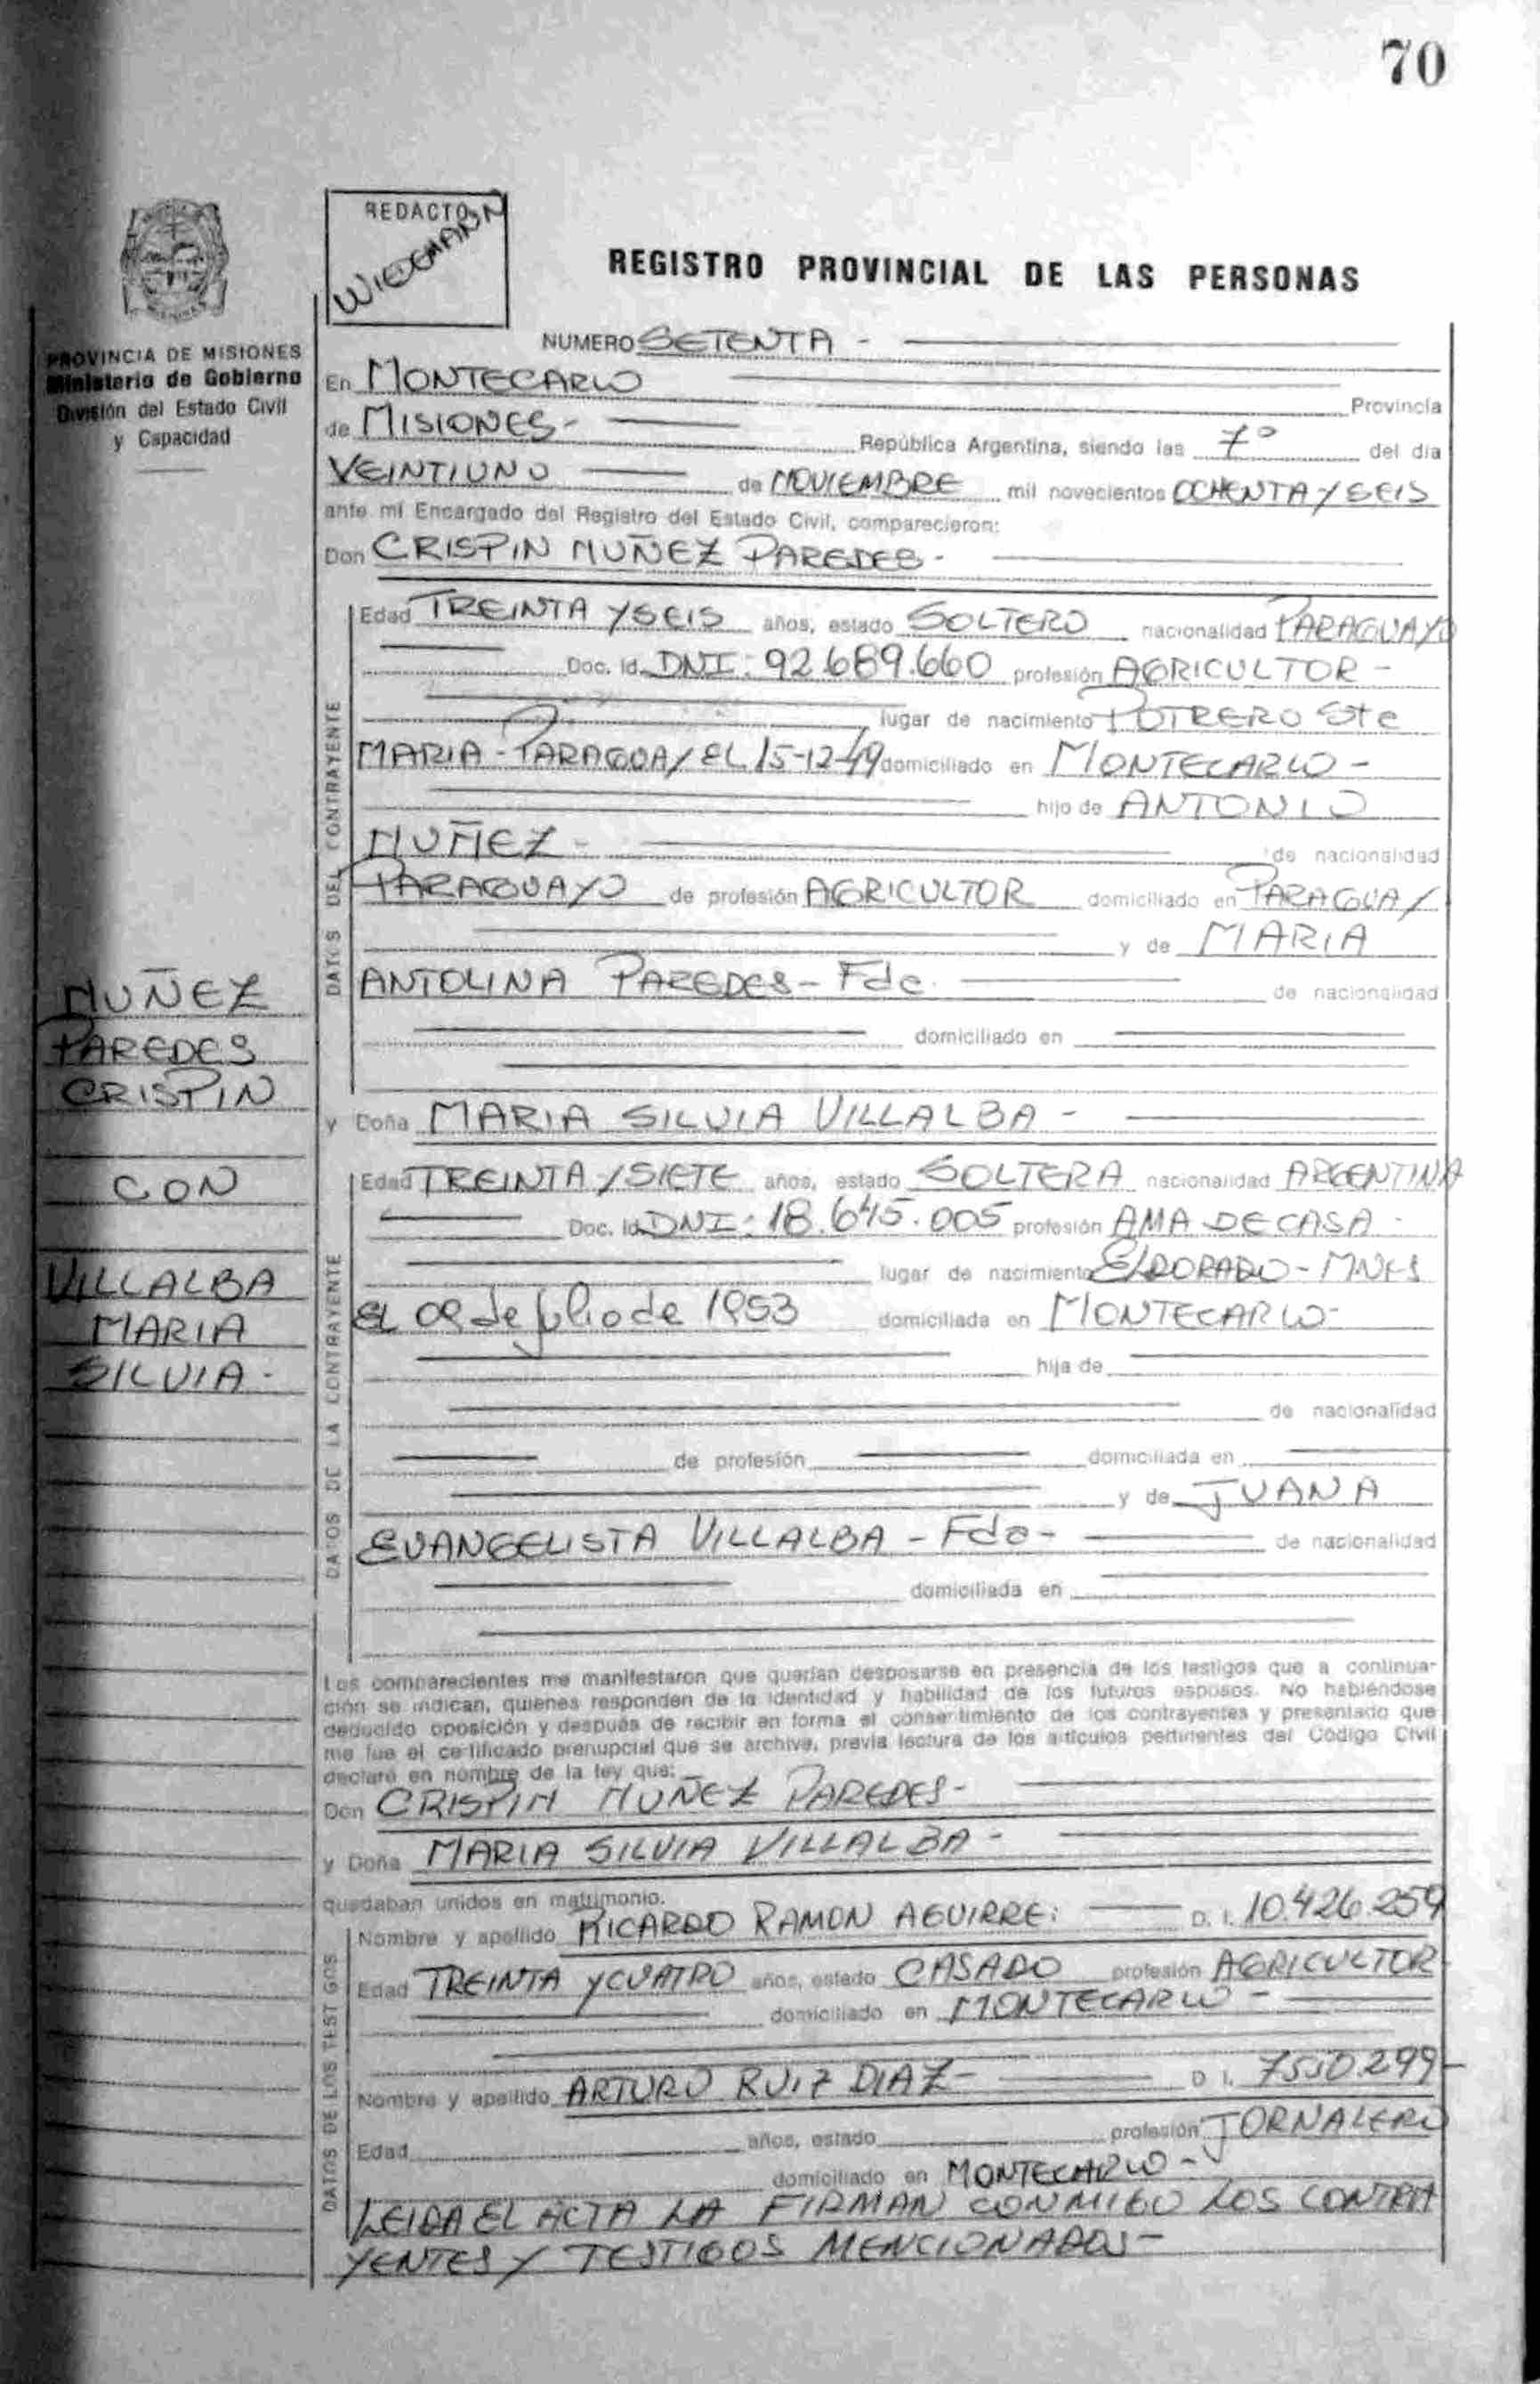 70
REDACTO
WIEDEMANN
REGISTRO PROVINCIAL DE LAS PERSONAS
PROVINCIA DE MISIONES
Ministerio de Gobierno
División del Estado Civil
y Capacidad
NUMERO SETENTA -
En MONTECARLO
Provincia
de MISIONES - República Argentina, siendo las 7° del día
VEINTIUNO de NOVIEMBRE mil novecientos OCHENTA Y SEIS
ante mí Encargado del Registro del Estado Civil, comparecieron:
Don CRISPIN NUÑEZ PAREDES -
DATOS DEL CONTRAYENTE
Edad TREINTA Y SEIS años, estado SOLTERO nacionalidad PARAGUAYO
Doc. Id. DNI: 92.689.660 profesión AGRICULTOR -
lugar de nacimiento POTRERO Ste
MARIA - PARAGUAY EL 15-12-49 domiciliado en MONTECARLO -
hijo de ANTONIO
NUÑEZ - de nacionalidad
PARAGUAYO de profesión AGRICULTOR domiciliado en PARAGUAY
y de MARIA
ANTOLINA PAREDES - Fdc. de nacionalidad
domiciliado en
NUÑEZ
PAREDES
CRISPIN
CON
VILLALBA
MARIA
SILVIA -
y Doña MARIA SILVIA VILLALBA -
DATOS DE LA CONTRAYENTE
Edad TREINTA Y SIETE años, estado SOLTERA nacionalidad ARGENTINA
Doc. Id. DNI: 18.645.005 profesión AMA DE CASA -
lugar de nacimiento ELDORADO - MNES
EL 09 de Julio de 1953 domiciliada en MONTECARLO -
hija de
de nacionalidad
de profesión domiciliada en
y de JUANA
EVANGELISTA VILLALBA - Fda - de nacionalidad
domiciliada en
Los comparecientes me manifestaron que querían desposarse en presencia de los testigos que a continua-
ción se indican, quienes responden de la identidad y habilidad de los futuros esposos. No habiéndose
deducido oposición y después de recibir en forma el consentimiento de los contrayentes y presentado que
me fue el certificado prenupcial que se archiva, previa lectura de los artículos pertinentes del Código Civil
declaro en nombre de la ley que:
Don CRISPIN NUÑEZ PAREDES -
y Doña MARIA SILVIA VILLALBA -
quedaban unidos en matrimonio.
DATOS DE LOS TESTIGOS
Nombre y apellido RICARDO RAMON AGUIRRE: D. I. 10.426.259
Edad TREINTA Y CUATRO años, estado CASADO profesión AGRICULTOR
domiciliado en MONTECARLO -
Nombre y apellido ARTURO RUIZ DIAZ - D. I. 7550.299 -
Edad años, estado profesión JORNALERO
domiciliado en MONTECARLO -
LEIDA EL ACTA LA FIRMAN CONMIGO LOS CONTRA
YENTES Y TESTIGOS MENCIONADOS -